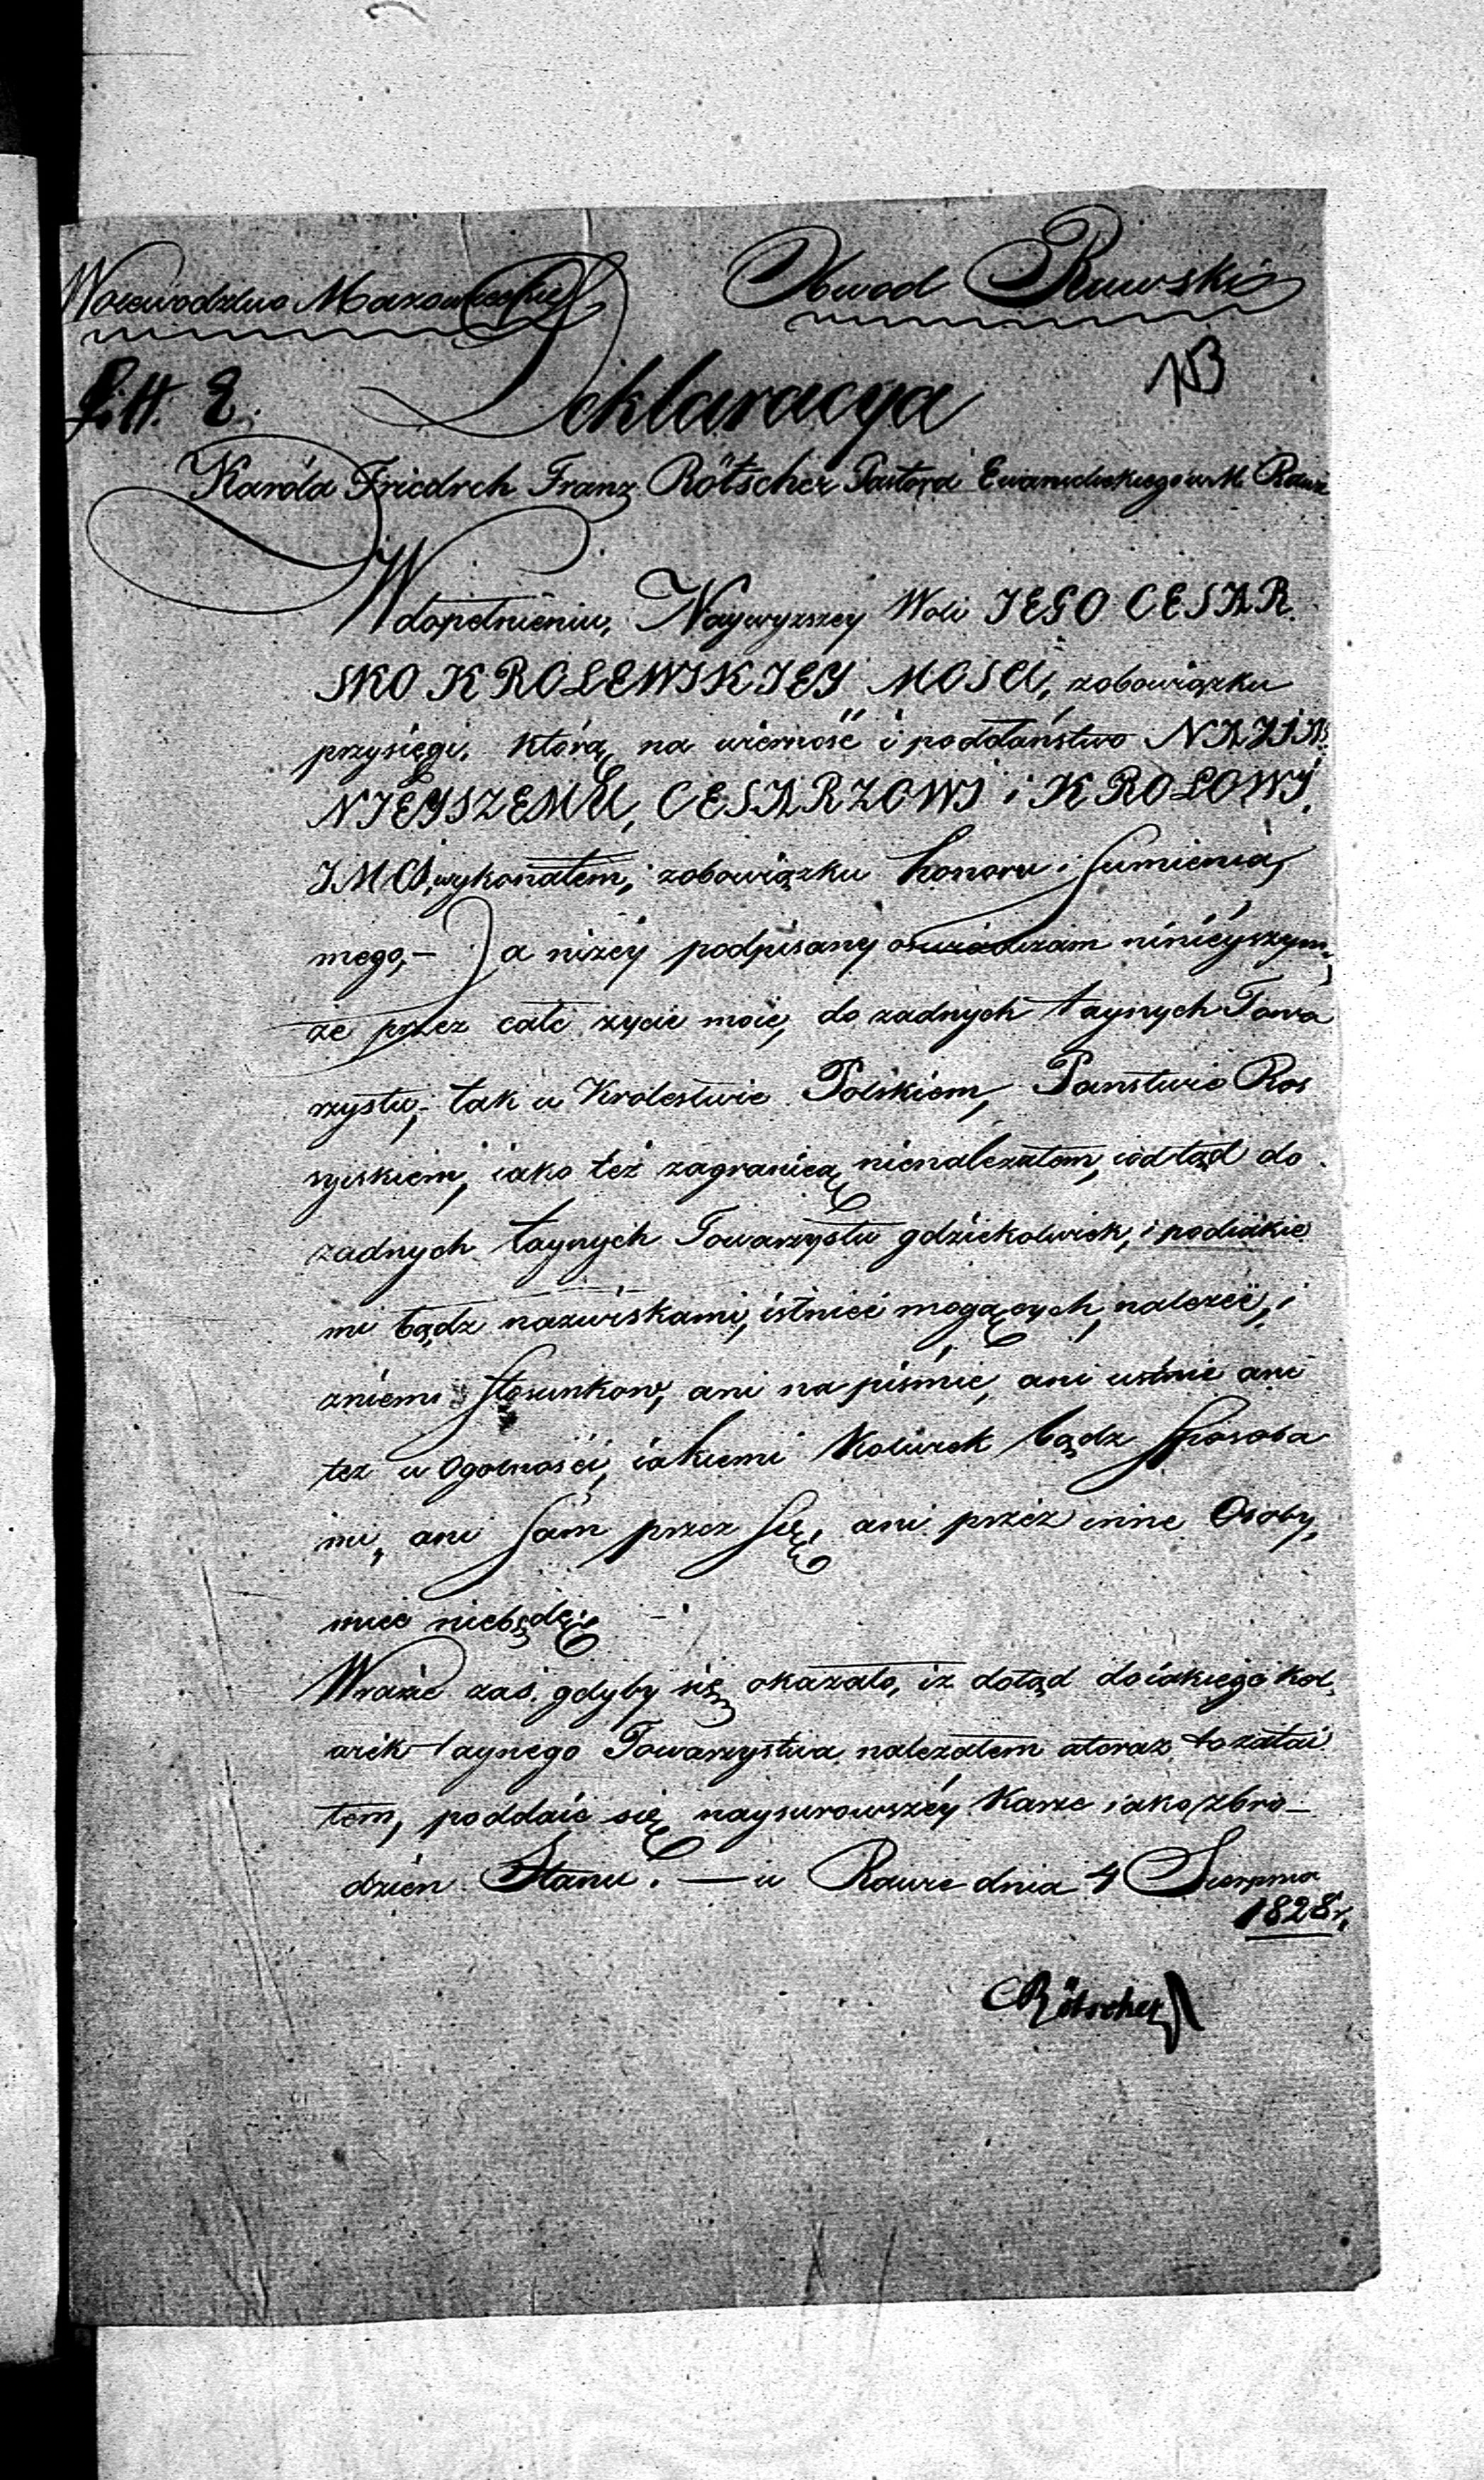 Woiewodztwo Mazowieckie Obwod Rawski
Litt. E.
Deklaracya
Karóla Friedrch Franz Rötscher Pastora Ewanielickiego w M. Rawie
W dopełnieniu, Naywyzszey Woli IEGO CESAR
SKO KROLEWSKIEY MOSCI, zobowiązku
przysięgi, którą na wierność i poddaństwo NAYIAŚ
NIEYSZEMU, CESARZOWI i KROLOWI,
IMCI, wykonałem, zobowiązku honoru i Sumienia,
mego, – Ja niżéy podpisany oswiadczam ninieyszym,
ze przez całe zycie moie, do zadnych taynych Towa
rzystw, tak w Krolestwie Polskiem, Panstwie Ros
syiskiem, iako też zagranicą nienalezałem, iodtąd do
zadnych taynych Towarzystw gdziekolwiek, i podiakie
mi bądz nazwiskami, istnieć mogących, nalezeć, i
zniemi Stosunkow, ani na piśmie, ani ustnie ani
tez w Ogolności, iakiemi Kolwiek bądz Sposoba
mi, ani Sam przez Się, ani przez inne Osoby,
mieć niebędę.
Wrazie zaś, gdyby się okazało, iz dotąd do iakiego kol
wiek taynego Towarzystwa nalezałem ateraz to zatai
łem, poddaie się naysurowszéy Karze iako zbro–
dzień Stanu. — w Rawie dnia 4 Sierpnia
1828 r.
Rötscher